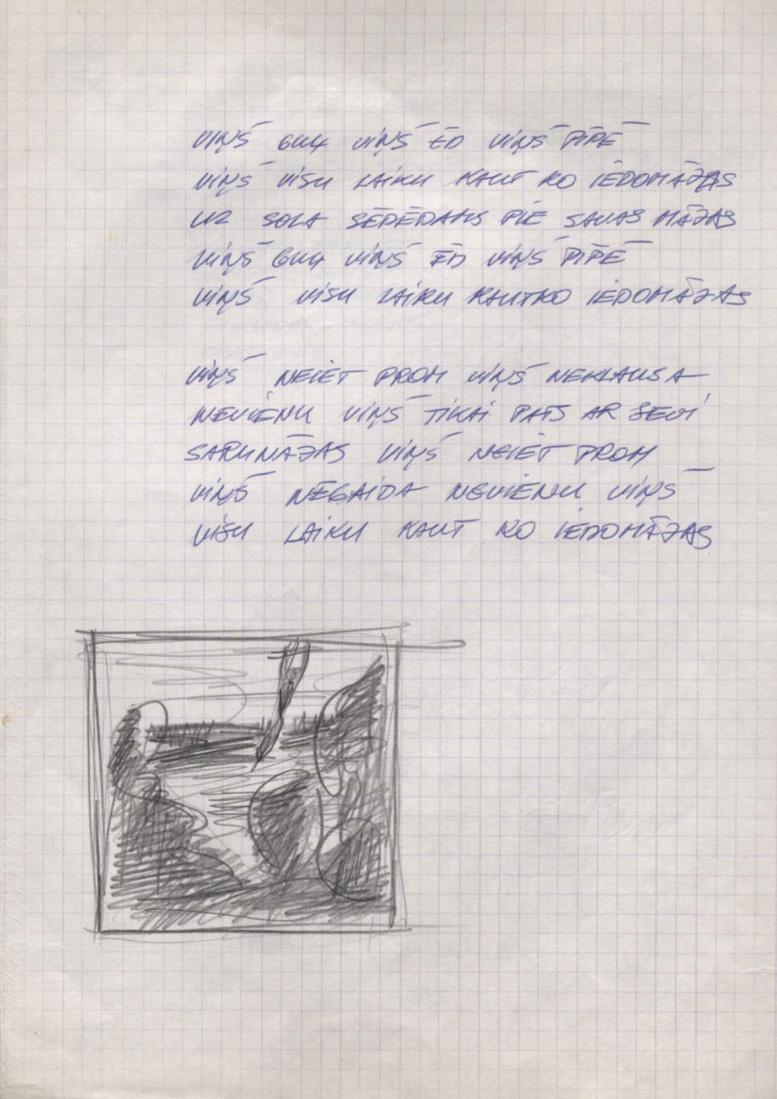 VIŅŠ GUĻ VIŅŠ ĒD VIŅŠ PĪPĒ
VIŅŠ VISU LAIKU KAUT KO IEDOMĀJAS
UZ SOLA SĒDĒDAMS PIE SAVAS MĀJAS
VIŅŠ GUĻ VIŅŠ ĒD VIŅŠ PĪPĒ
VIŅŠ VISU LAIKU KAUTKO IEDOMĀJAS
VIŅŠ NEIET PROM VIŅŠ NEKLAUSA
NEVIENU VIŅŠ TIKAI PATS AR SEVI
SARUNĀJAS VIŅŠ NEIET PROM
VIŅŠ NEGAIDA NEVIENU VIŅŠ
VISU LAIKU KAUT KO IEDOMĀJAS